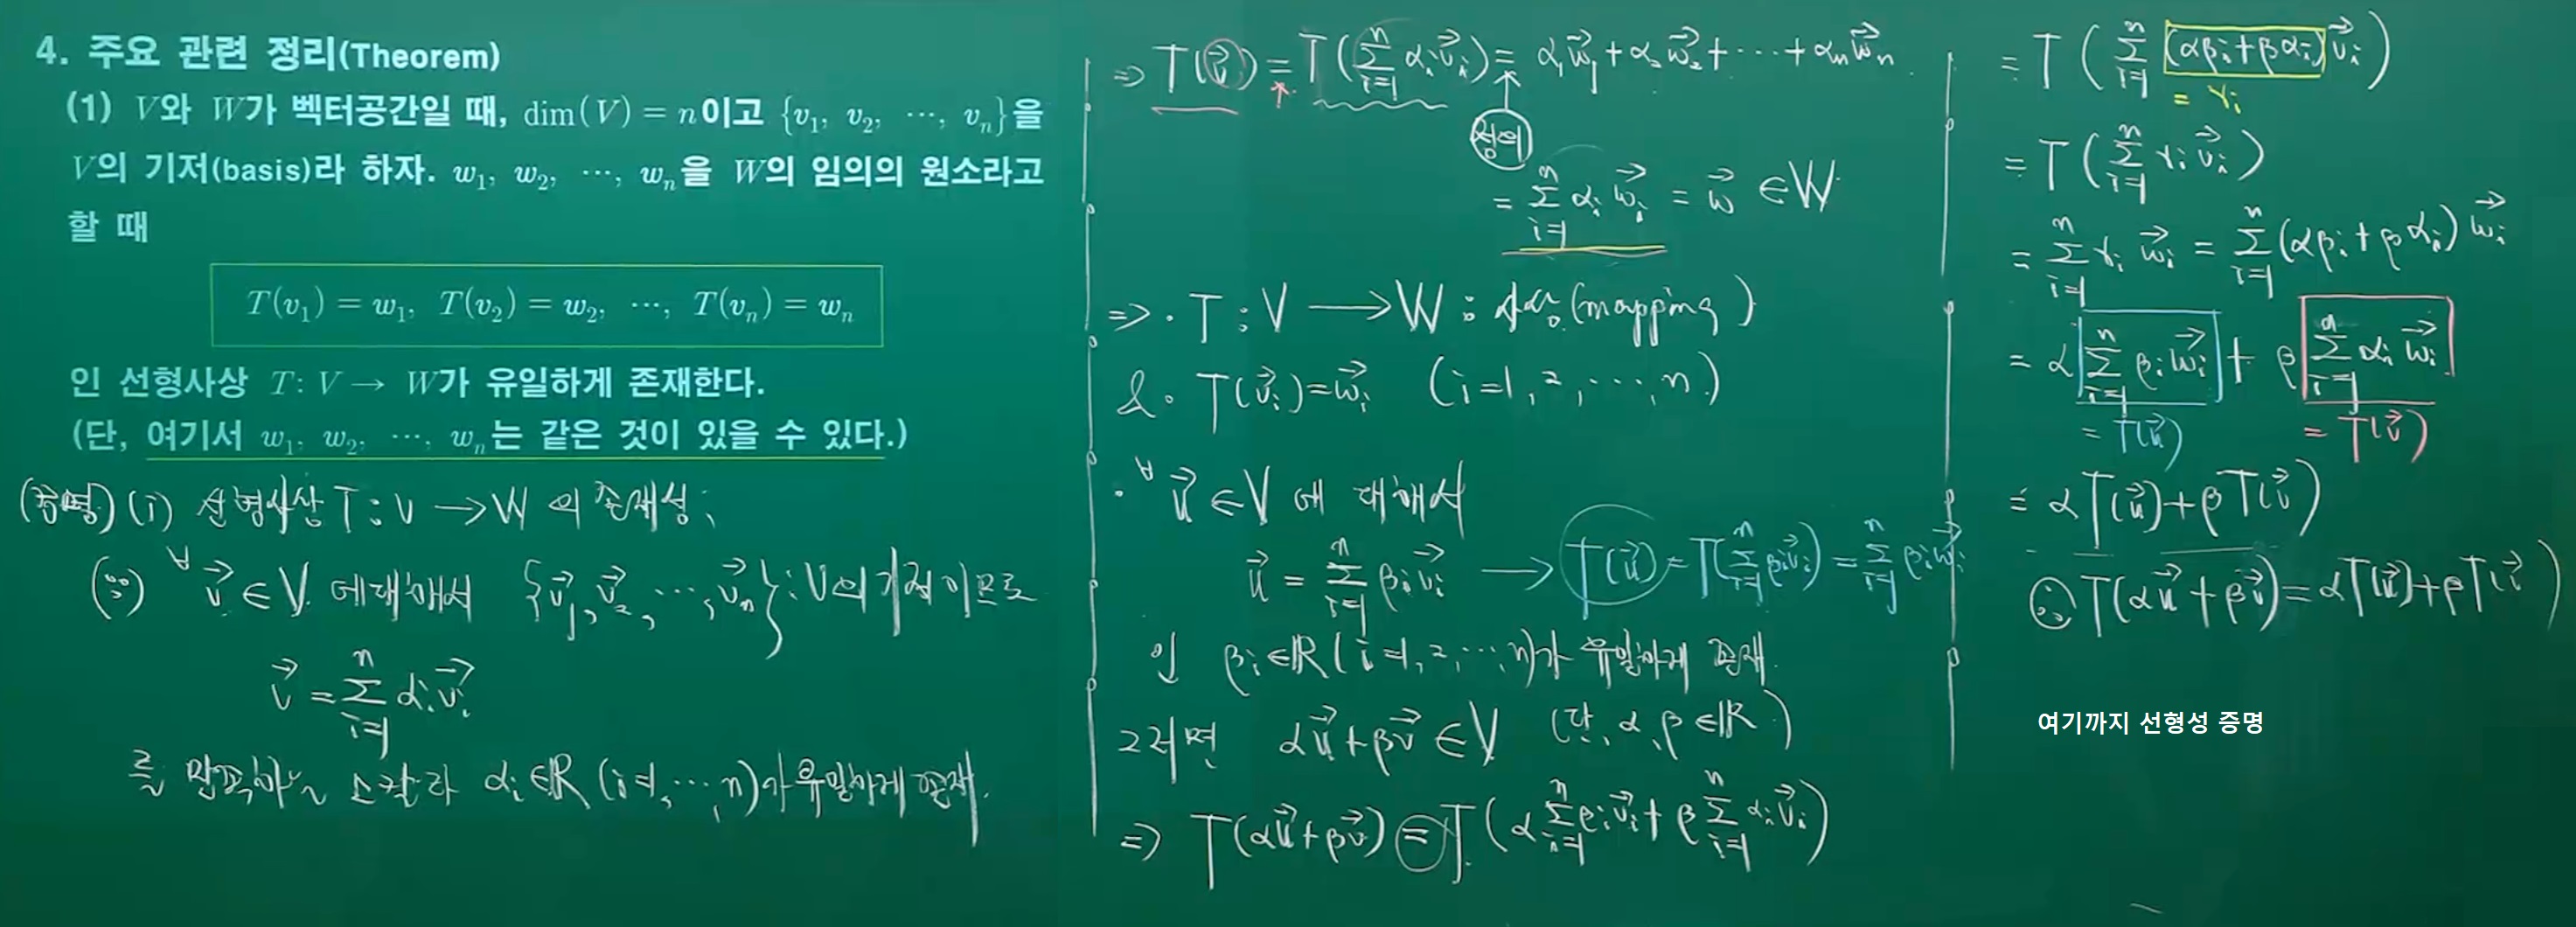 4. 주요 관련 정리(Theorem)
(1) V와 W가 벡터공간일 때, dim(V) = n이고 {v₁, v₂, ⋯, vₙ}을
V의 기저(basis)라 하자. w₁, w₂, ⋯, wₙ을 W의 임의의 원소라고
할 때
T(v₁) = w₁, T(v₂) = w₂, ⋯, T(vₙ) = wₙ
인 선형사상 T: V → W가 유일하게 존재한다.
(단, 여기서 w₁, w₂, ⋯, wₙ는 같은 것이 있을 수 있다.)
(증명) (i) 선형사상 T : V → W 의 존재성;
(∵) ∀v⃗ ∈ V 에 대해서 {v⃗₁, v⃗₂, ⋯, v⃗ₙ} : V의 기저이므로
v⃗ = Σⁿᵢ₌₁ αᵢv⃗ᵢ
를 만족하는 스칼라 αᵢ∈ℝ (i=1, ⋯, n)가 유일하게 존재.
⇒ T(v⃗) = T(Σⁿᵢ₌₁ αᵢv⃗ᵢ) = α₁w⃗₁ + α₂w⃗₂ + ⋯ + αₙw⃗ₙ
정의
= Σⁿᵢ₌₁ αᵢw⃗ᵢ = w⃗ ∈ W
⇒ · T : V → W : 사상(mapping)
& · T(v⃗ᵢ) = w⃗ᵢ (i=1, 2, ⋯, n)
· ∀u⃗ ∈ V 에 대해서
u⃗ = Σⁿᵢ₌₁ βᵢv⃗ᵢ → T(u⃗) = T(Σⁿᵢ₌₁ βᵢv⃗ᵢ) = Σⁿᵢ₌₁ βᵢw⃗ᵢ
인 βᵢ∈ℝ (i=1, 2, ⋯, n)가 유일하게 존재.
그러면 αu⃗ + βv⃗ ∈ V (단, α, β ∈ℝ)
⇒ T(αu⃗ + βv⃗) = T(α Σⁿᵢ₌₁ βᵢv⃗ᵢ + β Σⁿᵢ₌₁ αᵢv⃗ᵢ)
= T(Σⁿᵢ₌₁ (αβᵢ + βαᵢ)v⃗ᵢ)
= γᵢ
= T(Σⁿᵢ₌₁ γᵢv⃗ᵢ)
= Σⁿᵢ₌₁ γᵢw⃗ᵢ = Σⁿᵢ₌₁ (αβᵢ + βαᵢ)w⃗ᵢ
= α Σⁿᵢ₌₁ βᵢw⃗ᵢ + β Σⁿᵢ₌₁ αᵢw⃗ᵢ
= T(u⃗) = T(v⃗)
= αT(u⃗) + βT(v⃗)
∴ T(αu⃗ + βv⃗) = αT(u⃗) + βT(v⃗)
여기까지 선형성 증명